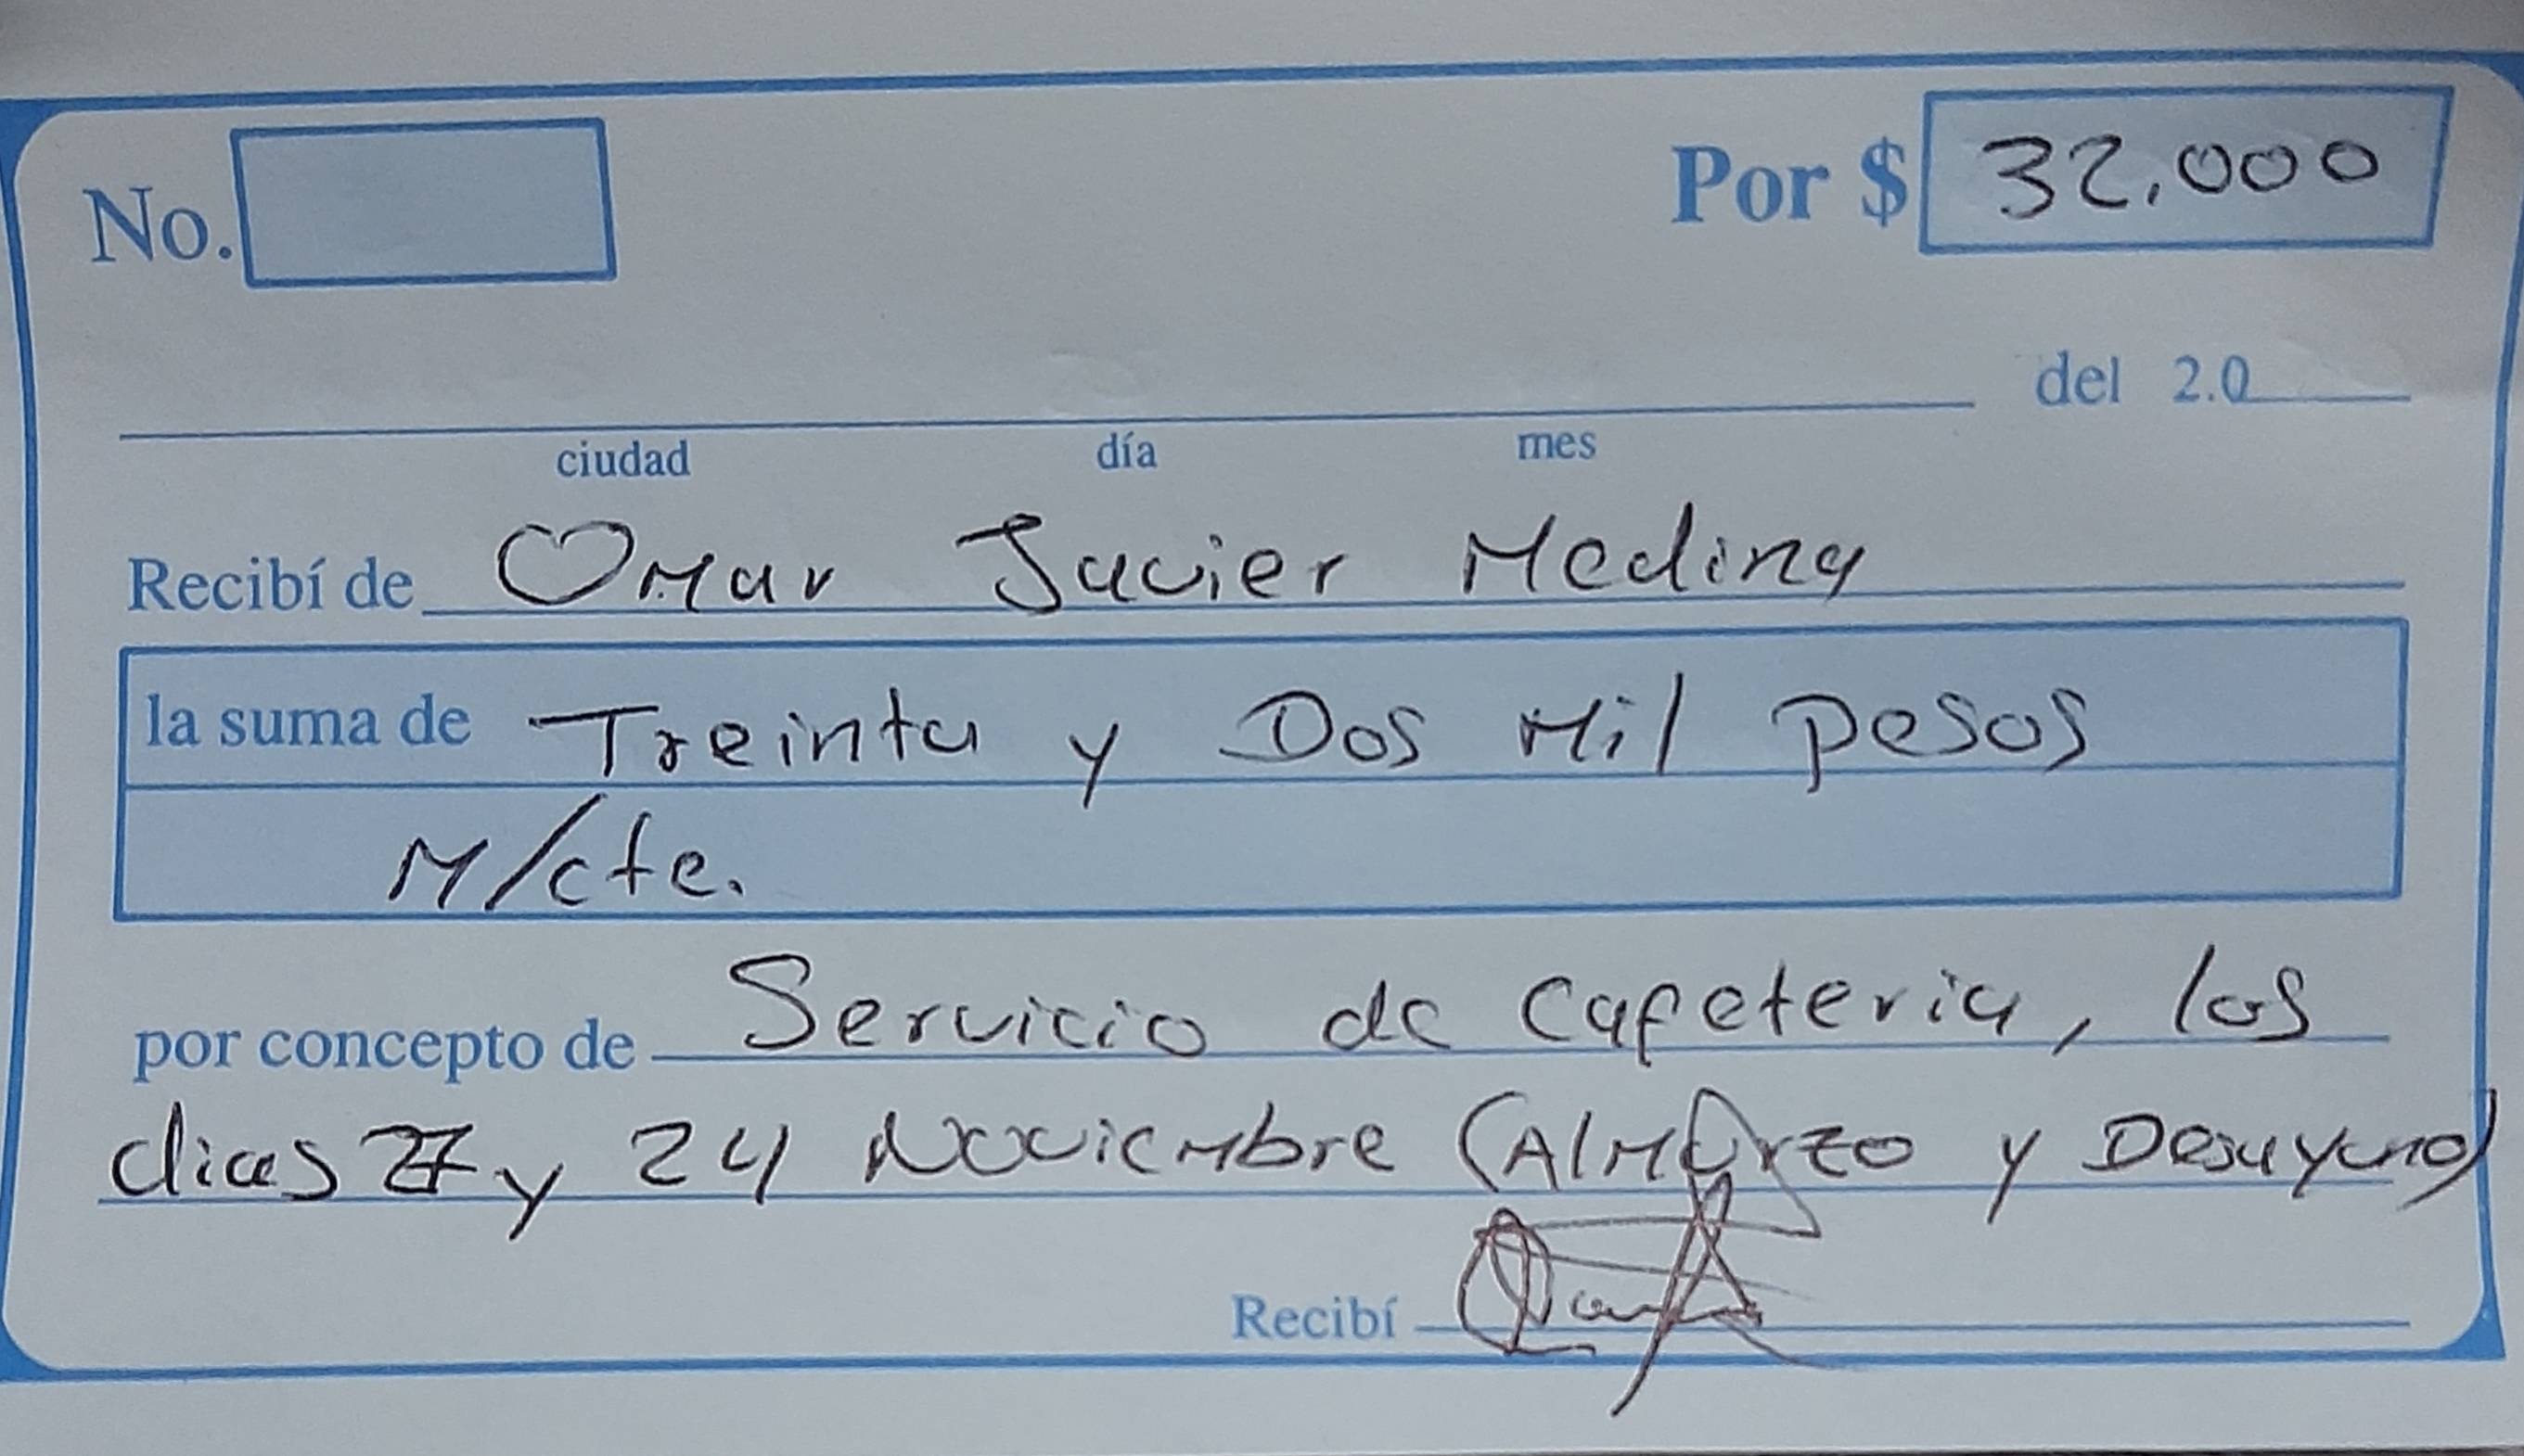 No. Por $ 32.000
del 2.0
ciudad día mes
Recibí de Omar Javier Medina
la suma de Treinta y Dos Mil pesos
M/cte.
por concepto de Servicio de Cafeteria, los
dias y 24 Noviembre (Almuerzo y Desayuno)
Recibí